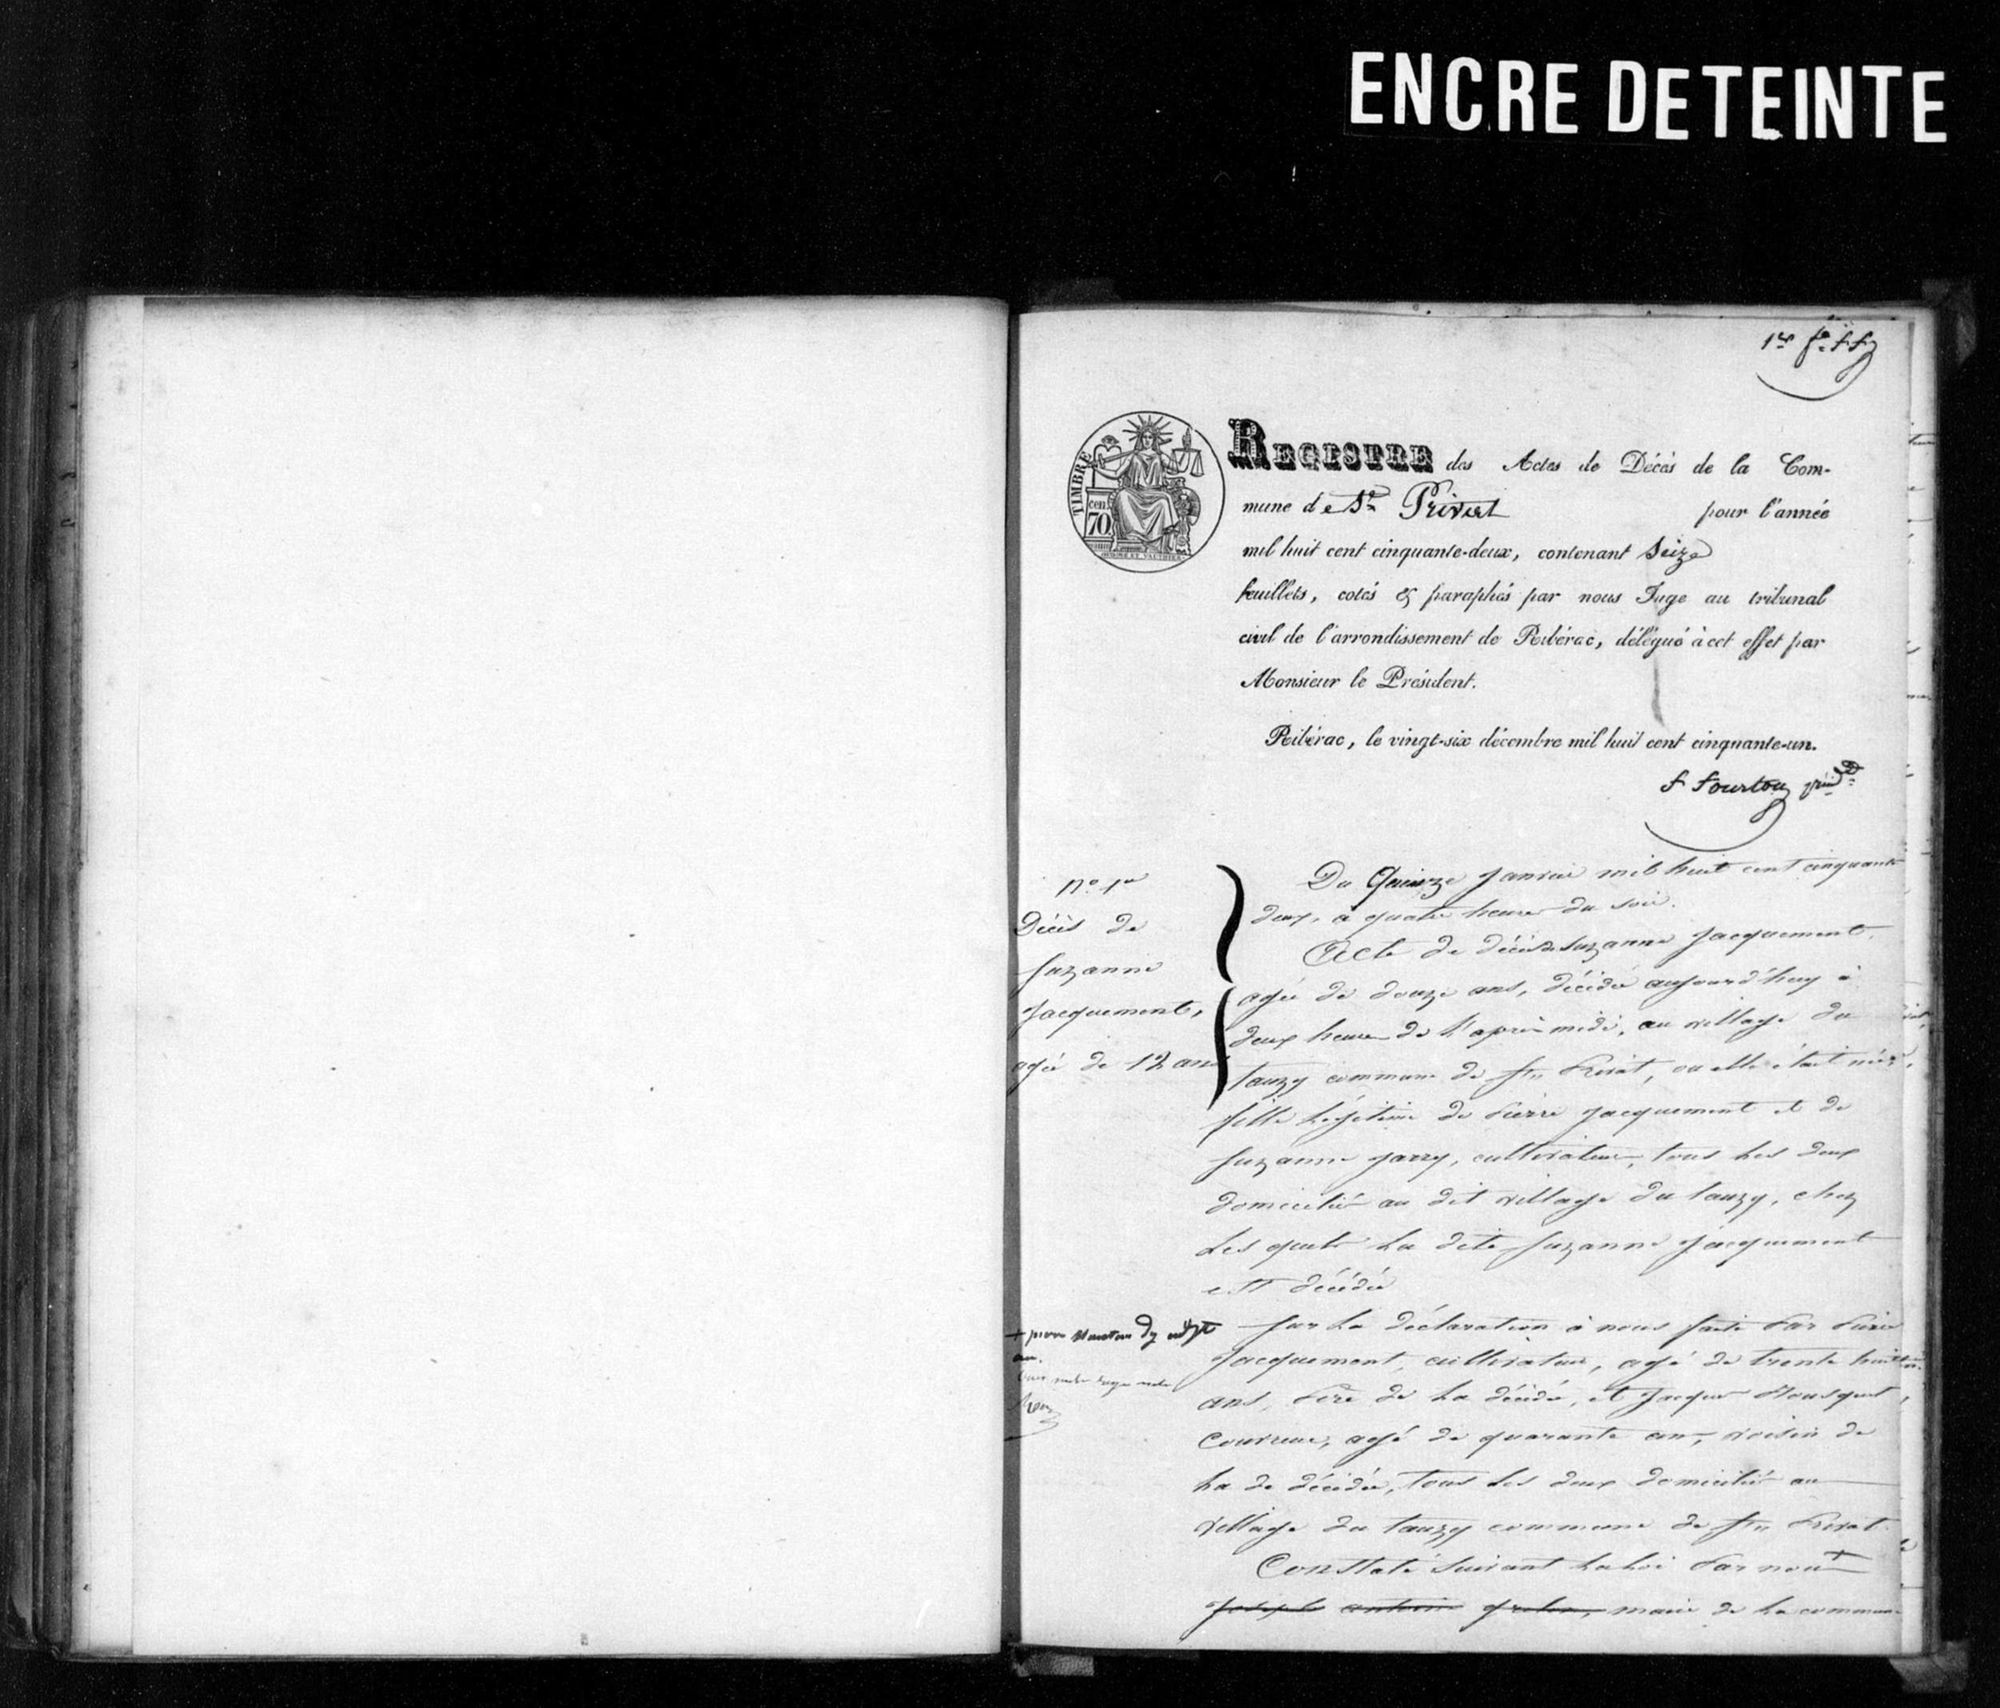 ENCRE DETEINTE
1er
TIMBRE
cen.
70
REGISTRE des Actes de Décès de la Com-
mune de St Privat pour l'année
mil huit cent cinquante-deux, contenant Seize
feuillets, cotés & paraphés par nous Juge au tribunal
civil de l'arrondissement de Ribérac, délégué à cet effet par
Monsieur le Président.
Ribérac, le vingt-six décembre mil huit cent cinquante-un.
f fourtou
no 1er
Décès de
Suzanne
Jacquement,
agée de 12 ans
Du Quinze Janvier mil huit cent cinquante
deux, à quatre heures du soir.
Acte de décès de Suzanne Jacquement,
agée de douze ans, décédée aujourd'huy à
deux heures de l'après midi, au village du
tauzy commune de St Privat, ou elle était née,
fille légitime de Pierre Jacquement et de
Suzanne Jarry, cultivateurs, tous les deux
domiciliés au dit village du tauzy, chez
les quels la dite Suzanne Jacquement
est décédée
Sur la déclaration à nous faite par Pierre
Jacquement, cultivateur, agé de trente huit
ans, Père de la décédée, et Jacques Mousquet,
Couvreur, agé de quarante ans, voisin de
la de décédée, tous les deux domiciliés au
village du tauzy commune de St Privat.
+ pierre
Constaté Suivant la loi Par nous +
Joseph antoine maire de la commune